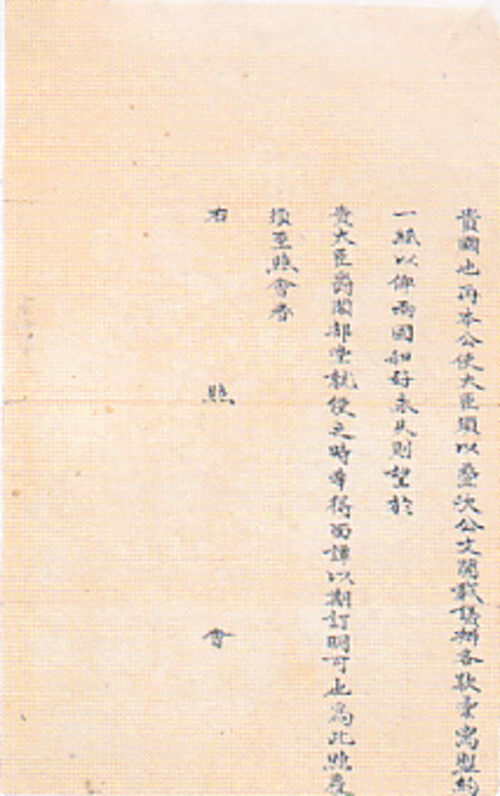 貴國也再本公使大臣須以疊次公文開載議辦各款彙寫盟約
一紙以俾兩國和好永久則望於
貴大臣爵閣部堂就便之時幸得面譚以期訂明可也為此照覆
須至照會者
右照會